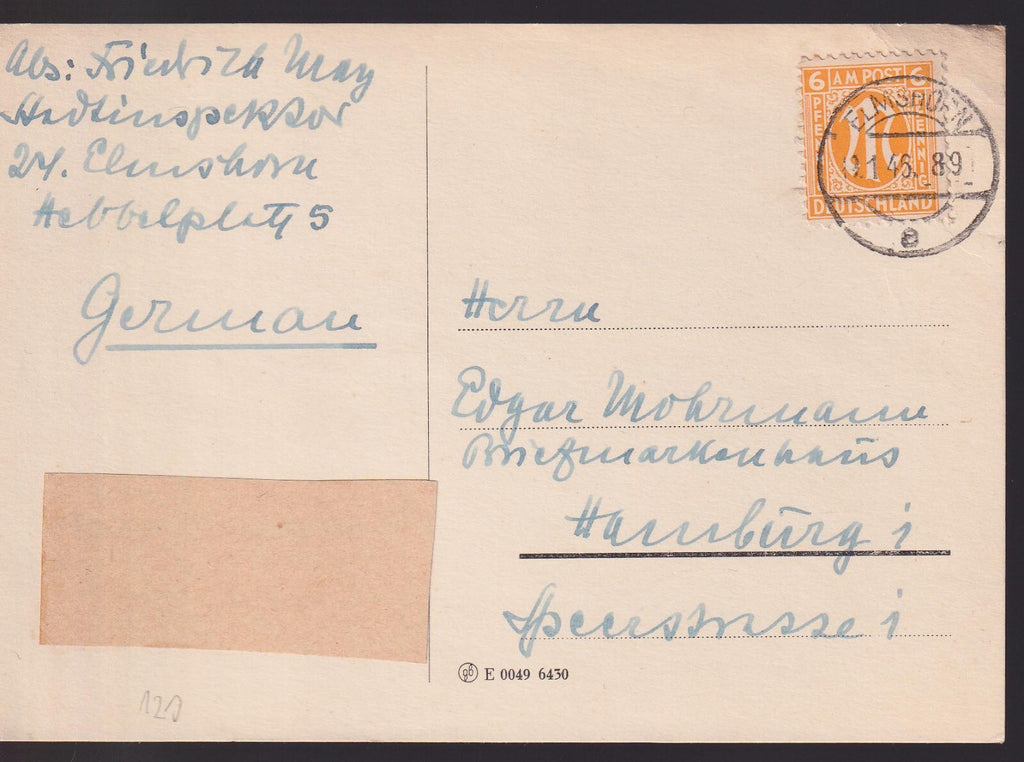 Abs: Friedrich May
Stadtinspektor
24. Elmshorn
Hebbelplatz 5
German
6 AM POST 6
PFENNIG
PFENNIG
DEUTSCHLAND
ELMSHORN
1 46. 89
a
Herrn
Edgar Mohrmann
Briefmarkenhaus
Hamburg 1
Speerstrasse 1
gb E 0049 6430
121